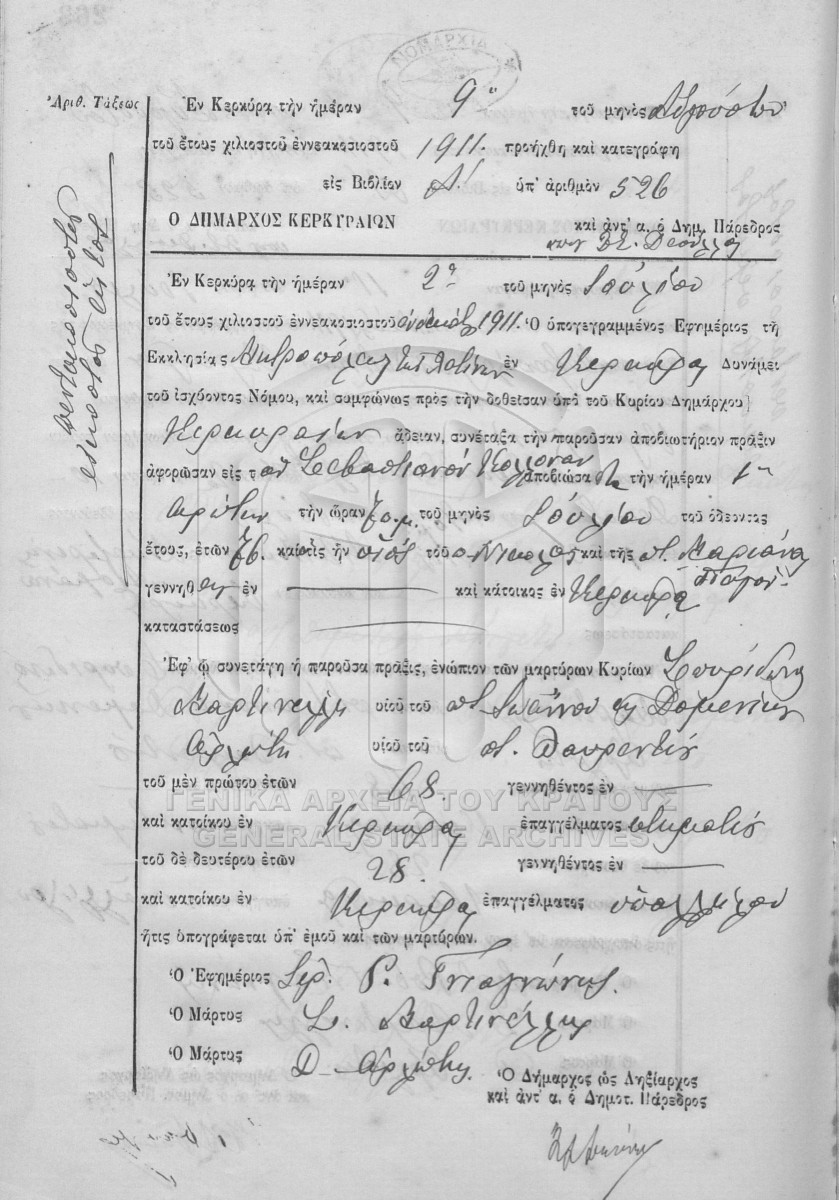 ΝΟΜΑΡΧΙΑ
Ἀριθ. Τάξεως
πεντακοσιοστὸν
εἰκοστὸν ἕκτον
Ἐν Κερκύρᾳ τὴν ἡμέραν 9 τοῦ μηνὸς Αὐγούστου
τοῦ ἔτους χιλιοστοῦ ἐννεακοσιοστοῦ 1911. προήχθη καὶ κατεγράφη
εἰς Βιβλίον Α! ὑπ' ἀριθμὸν 526
Ο ΔΗΜΑΡΧΟΣ ΚΕΡΚΥΡΑΙΩΝ καὶ ἀντ' α. ὁ Δημ. Πάρεδρος
Ἐν Κερκύρᾳ τὴν ἡμέραν 2α τοῦ μηνὸς Ἰουλίου
τοῦ ἔτους χιλιοστοῦ ἐννεακοσιοστοῦ 1911. Ὁ ὑπογεγραμμένος Ἐφημέριος τῆ
Εκκλησίας Μητροπόλεως τῶν Λατίνων ἐν Κερκύρᾳ Δυνάμει
τοῦ ἰσχύοντος Νόμου, καὶ συμφώνως πρὸς τὴν δοθεῖσαν ὑπὸ τοῦ Κυρίου Δημάρχου
Κερκυραίων ἄδειαν, συνέταξα τὴν παροῦσαν ἀποβιωτήριον πρᾶξιν
ἀφορῶσαν εἰς τὸν Σεβαστιανὸν ἀποβιώσαντα τὴν ἡμέραν 1ην
πρώτην τὴν ὥραν 7 π.μ. τοῦ μηνὸς Ἰουλίου τοῦ ὁδεοντος
ἔτους, ἐτῶν 76. καὶ ὅστις ἦν υἱὸς τοῦ π. Νικολάου καὶ τῆς π. Μαριάνα
γεννηθεὶς ἐν — καὶ κάτοικος ἐν Κερκύρᾳ
καταστάσεως —
Ἐφ' ᾧ συνετάγη ἡ παροῦσα πρᾶξις, ἐνώπιον τῶν μαρτύρων Κυρίων Σπυρίδωνα
Μαρτινέλλη υἱοῦ τοῦ π. Ἰωάννου καὶ Δομενίκου
Ἀρλώτη υἱοῦ τοῦ π. Λαυρεντίου
τοῦ μὲν πρώτου ἐτῶν 68. γεννηθέντος ἐν —
ΓΕΝΙΚΑ ΑΡΧΕΙΑ ΤΟΥ ΚΡΑΤΟΥΣ
καὶ κατοίκου ἐν Κερκύρᾳ ἐπαγγέλματος κτηματίας
GENERAL STATE ARCHIVES
τοῦ δὲ δευτέρου ἐτῶν 28. γεννηθέντος ἐν —
καὶ κατοίκου ἐν Κερκύρᾳ ἐπαγγέλματος ὑπαλλήλου
ἥτις ὑπογράφεται ὑπ' ἐμοῦ καὶ τῶν μαρτύρων.
Ὁ Ἐφημέριος
Ὁ Μάρτυς Σ. Μαρτινέλλης
Ὁ Μάρτυς Δ. Ἀρλώτης
Ὁ Δήμαρχος ὡς Ληξίαρχος
καὶ ἀντ' α. ὁ Δημοτ. Πάρεδρος